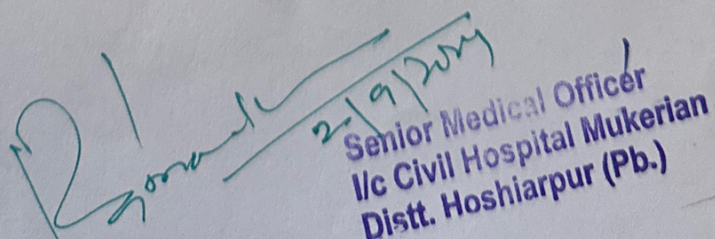 Senior Medical Officer
I/c Civil Hospital Mukerian
Distt. Hoshiarpur (Pb.)